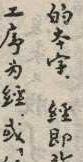 的本字。經即
工序为經或